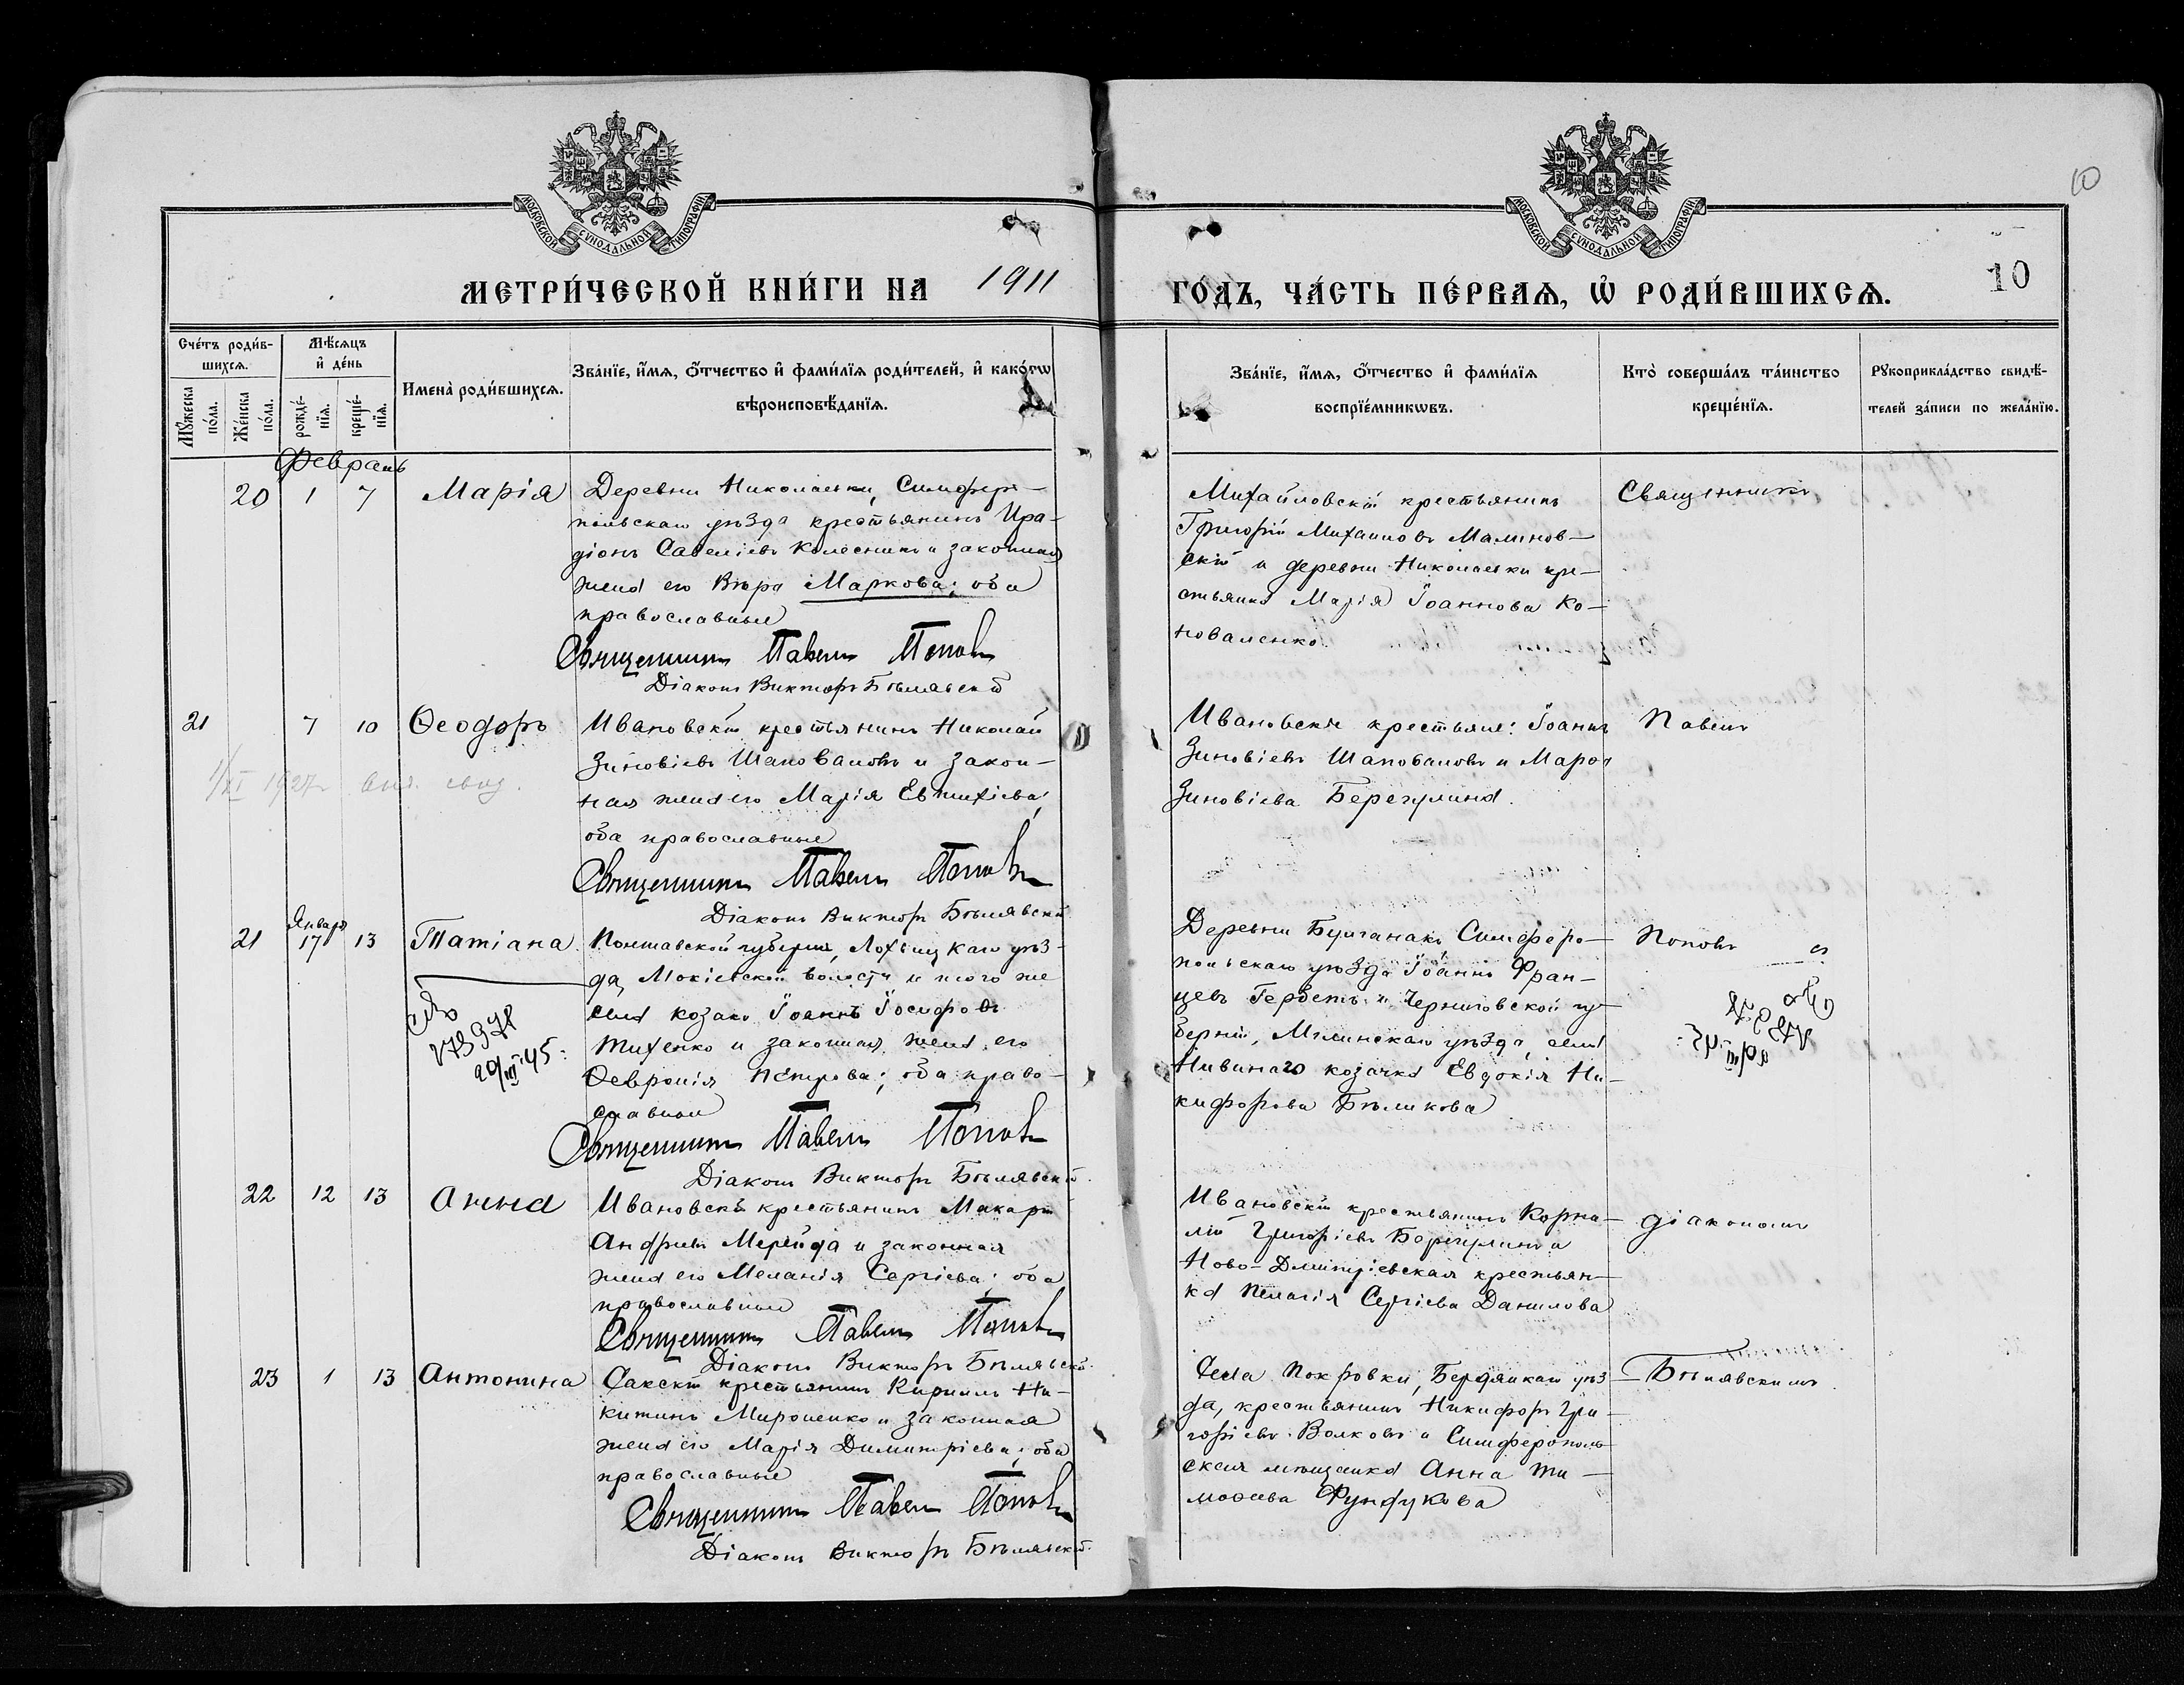 МОСКОВСКОЙ СѴНОДАЛЬНОЙ ТИПОГРАФІИ
МОСКОВСКОЙ СѴНОДАЛЬНОЙ ТИПОГРАФІИ
10
МЕТРИ́ЧЕСКОЙ КНИ́ГИ НА 1911
ГО́ДЪ, ЧА́СТЬ ПЕ́РВАЯ, Ѡ҆ РОДИ́ВШИХСЯ.
10
Счéтъ роди́в-
шихся.
Мꙋ́жеска
по́ла.
Же́нска
по́ла.
Мѣ́сяцъ
и҆ де́нь
рожде́-
нїя.
креще́-
нїя.
Имена̀ роди́вшихся.
Зва́нїе, и҆́мя, ѻ҆́тчество и҆ фами́лїя роди́телей, и҆ како́гѡ
вѣроисповѣ́данїя.
Зва́нїе, и҆́мя, ѻ҆́тчество и҆ фами́лїя
воспрїе́мникѡвъ.
Кто̀ соверша́лъ та́инство
креще́нїя.
Рꙋкоприкла́дство свидѣ́-
телей за́писи по жела́нїю.
Февраль
20 1 7 Марія
Деревни Николаевки, Симферо-
польскаго уѣзда крестьянинъ Ира-
діонъ Савеліевъ Колесникъ и законная
жена его Вѣра Маркова; оба
православные
Священникъ Павелъ Поповъ
Діаконъ Викторъ Бѣлявскій
Михайловскій крестьянинъ
Григорій Михаиловъ Малинов-
скій и деревни Николаевки кре-
стьянка Марія Іоаннова Ко-
новаленко.
Священникъ
21 7 10 Ѳеодоръ
1/XI 1927 г. выд. свид.
Ивановскій крестьянинъ Николай
Зиновіевъ Шаповаловъ и закон-
ная жена его Марія Евтихіева;
оба православные
Священникъ Павелъ Поповъ
Діаконъ Викторъ Бѣлявскій
Ивановскіе крестьяне: Іоаннъ
Зиновіевъ Шаповаловъ и Марѳа
Зиновіева Берегулина.
Павелъ
21 Января 17 13 Татіана
20/III 45
Полтавской губерніи, Лохвицкаго уѣз-
да, Мокіевской волости и того же
села козакъ Іоаннъ Іосифовъ
Тихенко и законная жена его
Ѳевронія Петрова; оба право-
славные
Священникъ Павелъ Поповъ
Діаконъ Викторъ Бѣлявскій.
Деревни Булганакъ Симферо-
польскаго уѣзда Іоаннъ Фран-
цевъ Гербетъ и Черниговской гу-
берніи, Мглинскаго уѣзда, села
козачка Евдокія Ни-
кифорова Бѣликова
Поповъ съ
22 12 13 Анна
Ивановскій крестьянинъ Макарій
Андреевъ и законная
жена его Меланія Сергіева; оба
православные
Священникъ Павелъ Поповъ
Діаконъ Викторъ Бѣлявскій.
Ивановскій крестьянинъ Корни-
лій Григоріевъ Берегулинъ и
Ново-Дмитріевская крестьян-
ка Пелагія Сергіева Данилова
діакономъ
23 1 13 Антонина
Сакскій крестьянинъ Кириллъ Ни-
китинъ Мироненко и законная
жена его Марія Димитріева; оба
православные
Священникъ Павелъ Поповъ
Діаконъ Викторъ Бѣлявскій.
Села Покровки, Бердянскаго уѣз-
да, крестьянинъ Никифоръ Гри-
горіевъ Волковъ и Симферополь-
ская мѣщанка Анна Ти-
моѳеева Фундукова
Бѣлявскимъ